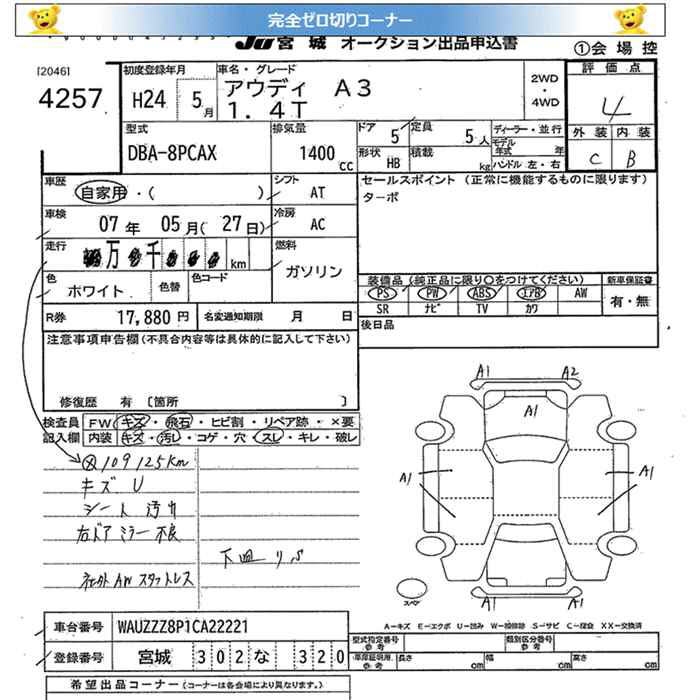 完全ゼロ切りコーナー
JU宮城 オークション出品申込書
①会場控
[2046]
4257
初度登録年月
H24 5月
車名・グレード
アウディ A3
1.4T
2WD
・
4WD
評価点
4
外装 内装
C B
型式
DBA-8PCAX
排気量
1400 cc
ドア 5
定員 5人
ディーラー・並行
モデル年式 年
形状 HB
積載 kg
ハンドル 左・右
車歴
自家用・( )
シフト
AT
セールスポイント (正常に機能するものに限ります)
ターボ
車検
07年 05月(27日)
冷房
AC
走行
万 千 km
燃料
ガソリン
色
ホワイト
色替
色コード
装備品 (純正品に限り○をつけてください)
新車保証書
PS PW ABS エアB AW
有・無
SR ナビ TV カワ
R券 17,880円
名変通知期限 月 日
後日品
注意事項申告欄(不具合内容等は具体的に記入して下さい)
修復歴 有 〔箇所 〕
検査員
記入欄
FW キズ・飛石・ヒビ割・リペア跡・×要
内装 キズ・汚レ・コゲ・穴・スレ・キレ・破レ
109125km
キズ U
シート 汚れ
右ドアミラー不良
下皿 りS
社外AW スタットレス
A1 A2
A1
A1 A1
A1 A1
スペア
A-キズ E-エクボ U-凹み W-補修跡 S-サビ C-腐食 XX-交換済
車台番号 WAUZZZ8P1CA22221
登録番号 宮城 302 な 320
型式指定番号
参考
類別区分番号
参考
車庫証明用
参考
長さ cm 幅 cm 高さ cm
希望出品コーナー (コーナーは各会場により異なります。)